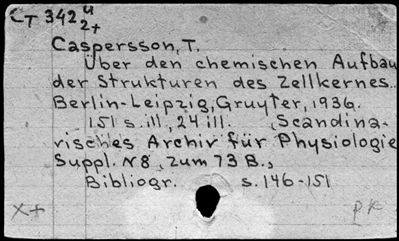 CT 342 4
2+
Caspersson, T.
Über den chemischen Aufbau
der Strukturen des Zellkernes..
Berlin-Leipzig, Gruyter, 1936.
151 s. ill, 24 ill. (Scandina-
risches Archiv für Physiologie
Suppl. N8, zum 73 B.,
Bibliogr. s. 146-151
x+ PK